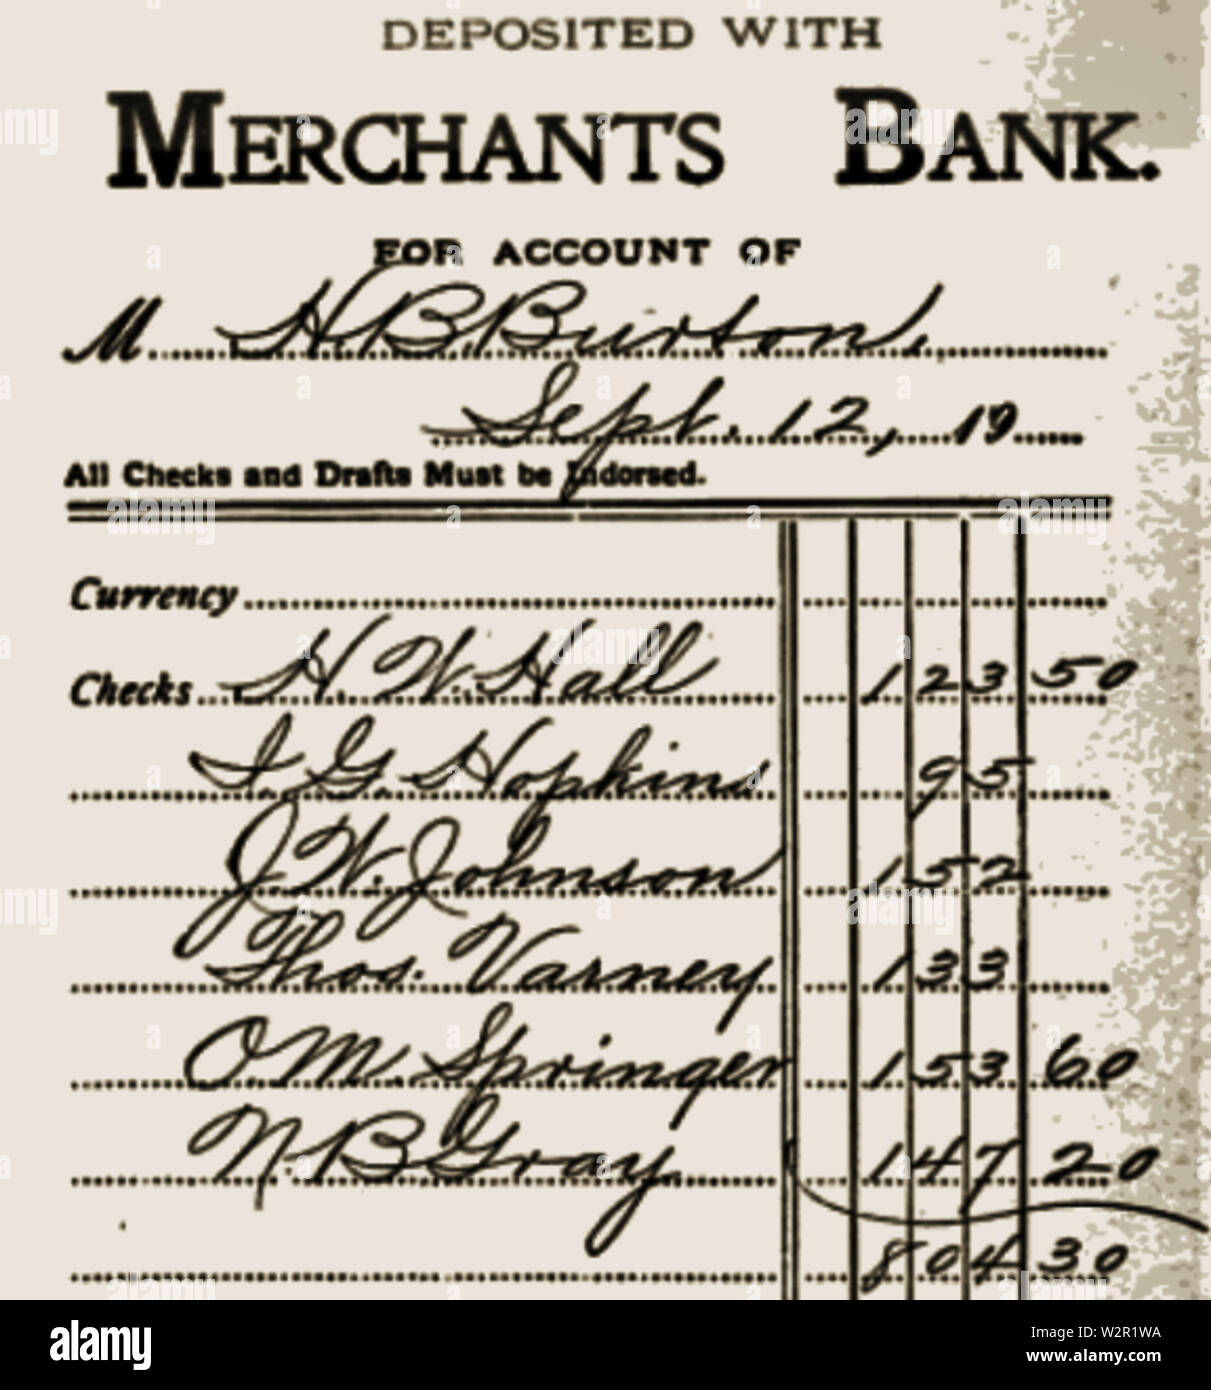 DEPOSITED WITH
MERCHANTS BANK.
FOR ACCOUNT OF
M H.B. Burton,
Sept. 12, 19
All Checks and Drafts Must be Indorsed.
Currency
Checks H. W. Hall 123 50
I. G. Hopkins 95
J. W. Johnson 152
Thos. Varney 133
O M. Springer 153 60
N. B Gray 147 20
804 30
alamy
Image ID: W2R1WA
www.alamy.com